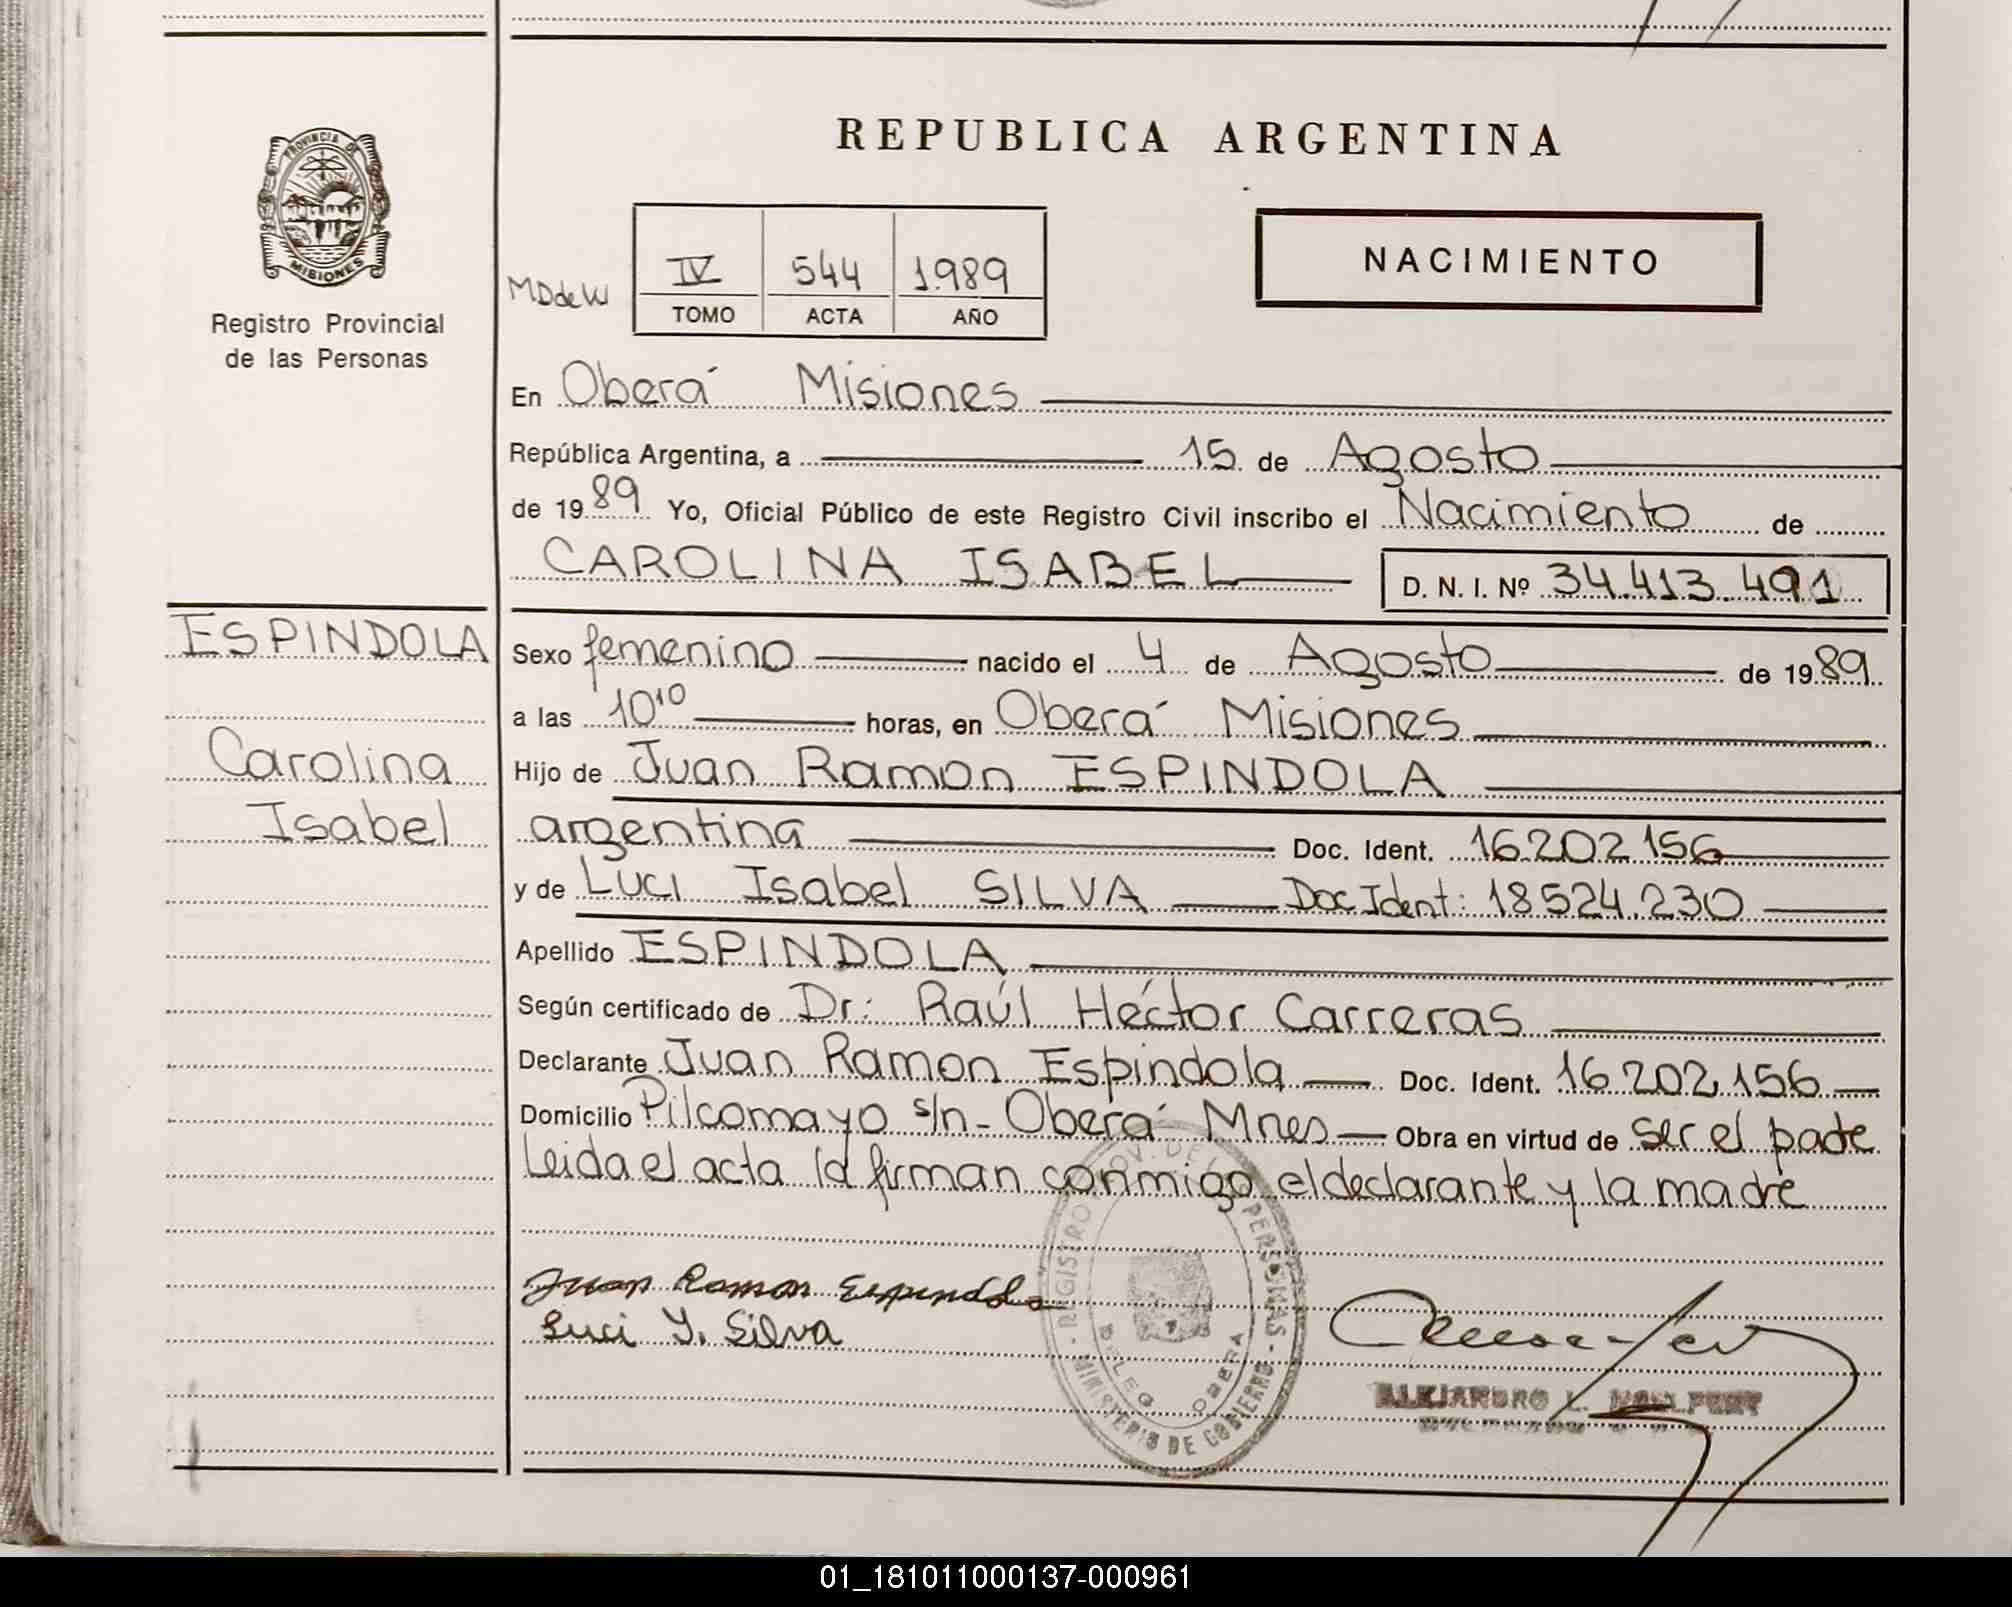 REPUBLICA ARGENTINA
PROVINCIA DE
MISIONES
Registro Provincial
de las Personas
MDdeW
IV 544 1989
TOMO ACTA AÑO
NACIMIENTO
En Oberá Misiones
República Argentina, a 15 de Agosto
de 1989 Yo, Oficial Público de este Registro Civil inscribo el Nacimiento de
CAROLINA ISABEL D. N. I. Nº 34.413.491
ESPINDOLA
Carolina
Isabel
Sexo femenino nacido el 4 de Agosto de 1989
a las 10'10 horas, en Oberá Misiones
Hijo de Juan Ramon ESPINDOLA
argentina Doc. Ident. 16.202.156
y de Luci Isabel SILVA Doc Ident: 18.524.230
Apellido ESPINDOLA
Según certificado de Dr: Raúl Héctor Carreras
Declarante Juan Ramon Espindola Doc. Ident. 16.202.156
Domicilio Pilcomayo s/n - Oberá Mnes Obra en virtud de ser el padre
Leida el acta la firman conmigo el declarante y la madre
Juan Ramon Espindola
Luci Y. Silva
REGISTRO PROV. DE PERSONAS
MINISTERIO DE GOBIERNO
DELEG. OBERA
ALEJANDRO L.
01_181011000137-000961